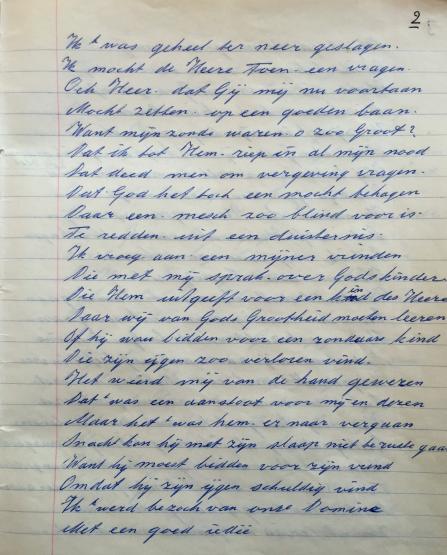 2
Ik was geheel ter neer geslagen.
Ik mocht de Heere Toen een vragen
Och Heer. dat Gij mij nu voortaan
Mocht zetten op een goeden baan.
Want mijn zonde waren o zoo Groot?
Dat ik tot Hem riep in al mijn nood
Dat deed men om vergeving vragen.
Dat God het toch een mocht behagen
Daar een mesch zoo blind voor is
Te redden uit een duisternis.
Ik vroeg aan een mijner vrinden
Die met mij sprak over Gods kinder
Die Hem uitgeeft voor een kind des Heere
Daar wij van Gods Grootheid moeten leeren
Of hij wou bidden voor een zondaars kind
Die zijn eigen zoo verloren vind.
Het wierd mij van de hand gewezen
Dat was een aanstoot voor mij en dezen
Maar het was hem er naar vergaan
Snachts kon hij met zijn slaap niet be gaan
Want hij moest bidden voor zijn vrind
Omdat hij zijn eigen schuldig vind
Ik werd bezoch van onze Domine
Met een goed iedië